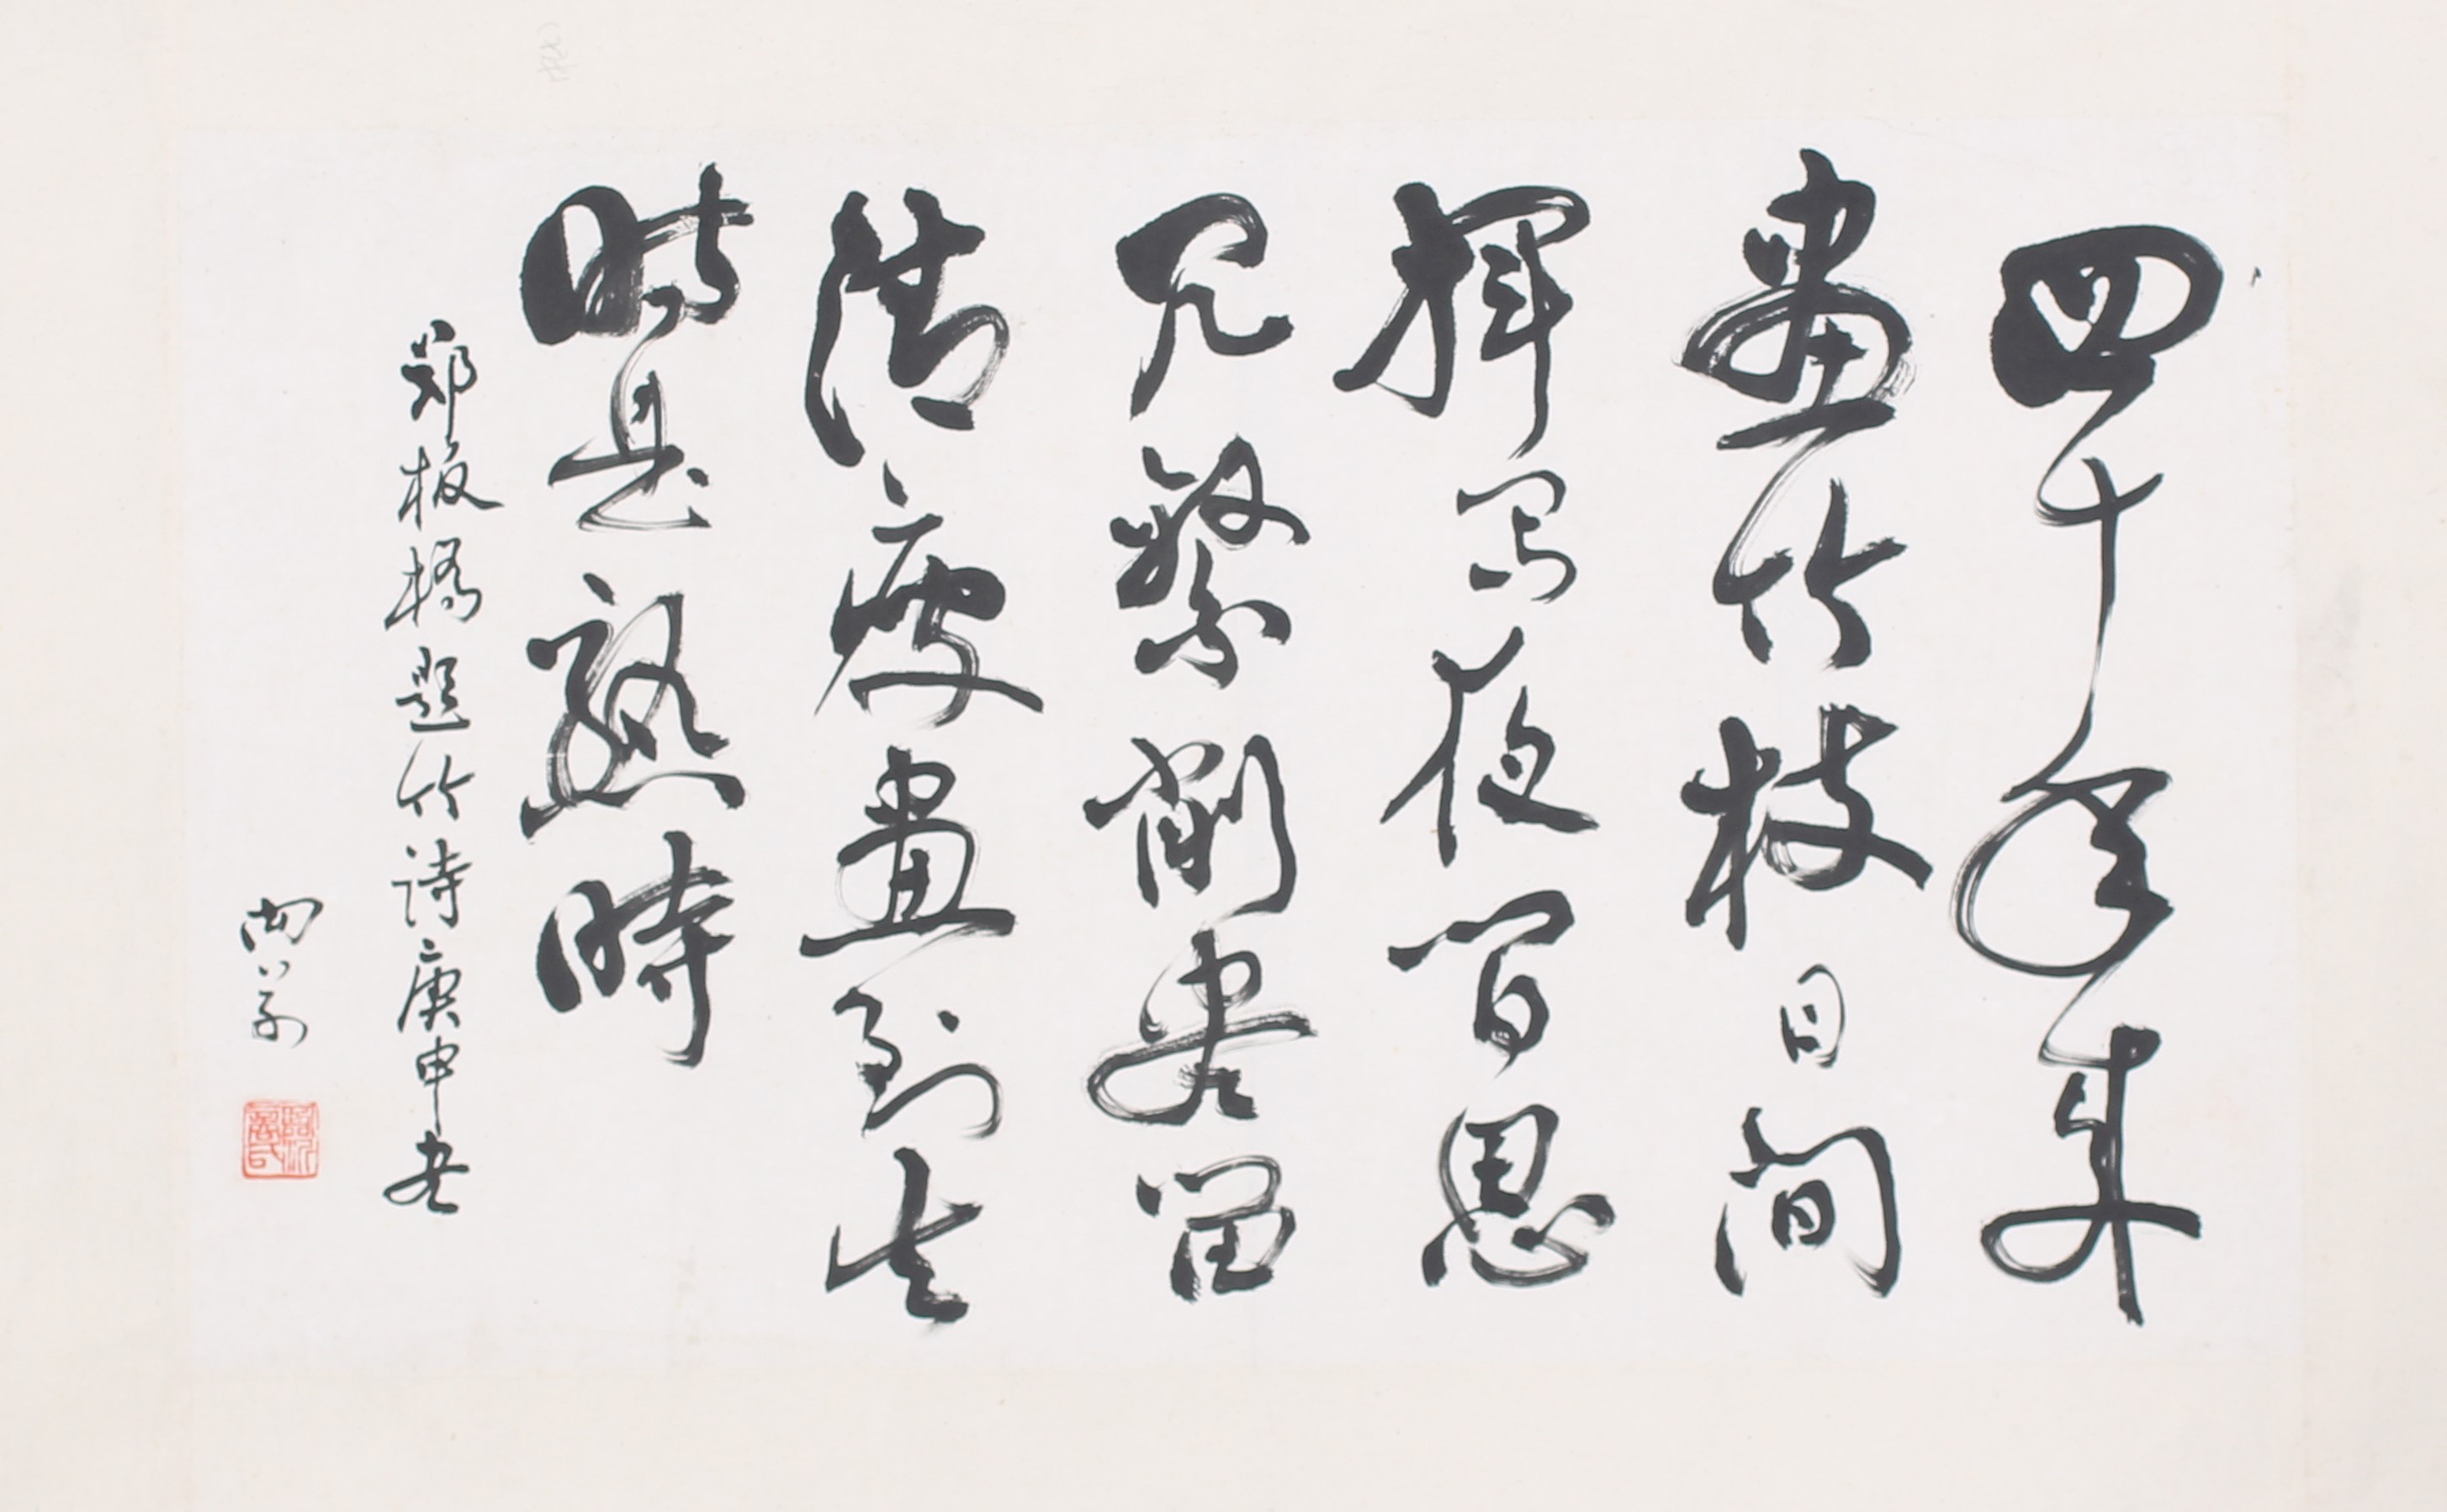 四十年来
畫竹枝日间
揮写夜间思
冗繁削尽留
清瘦畫到生
时是熟時
郑板桥题竹诗庚申
尚